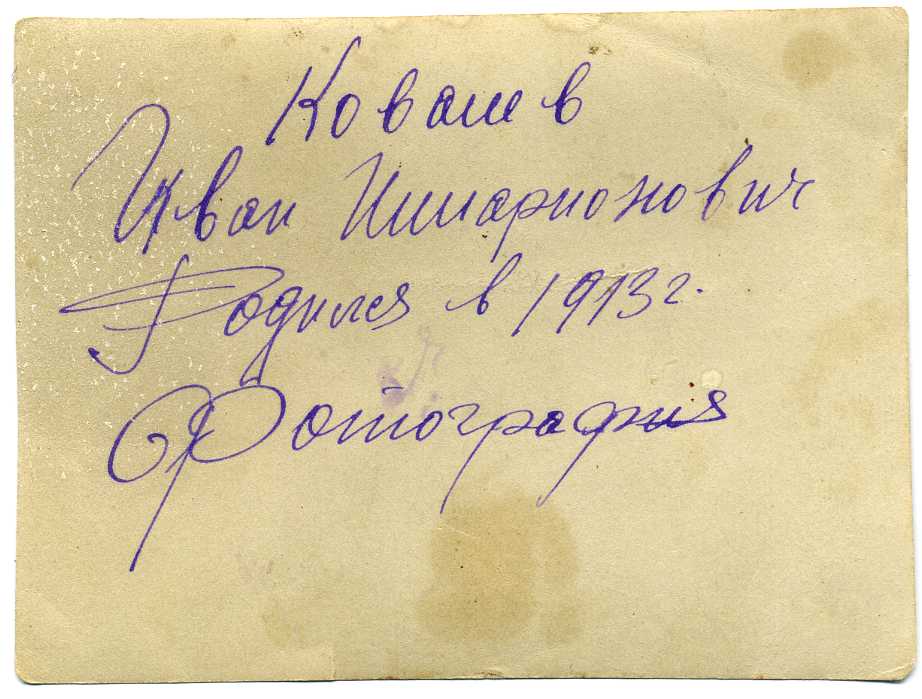 Ковалев
Иван Илларионович
Родился в 1913 г.
Фотография